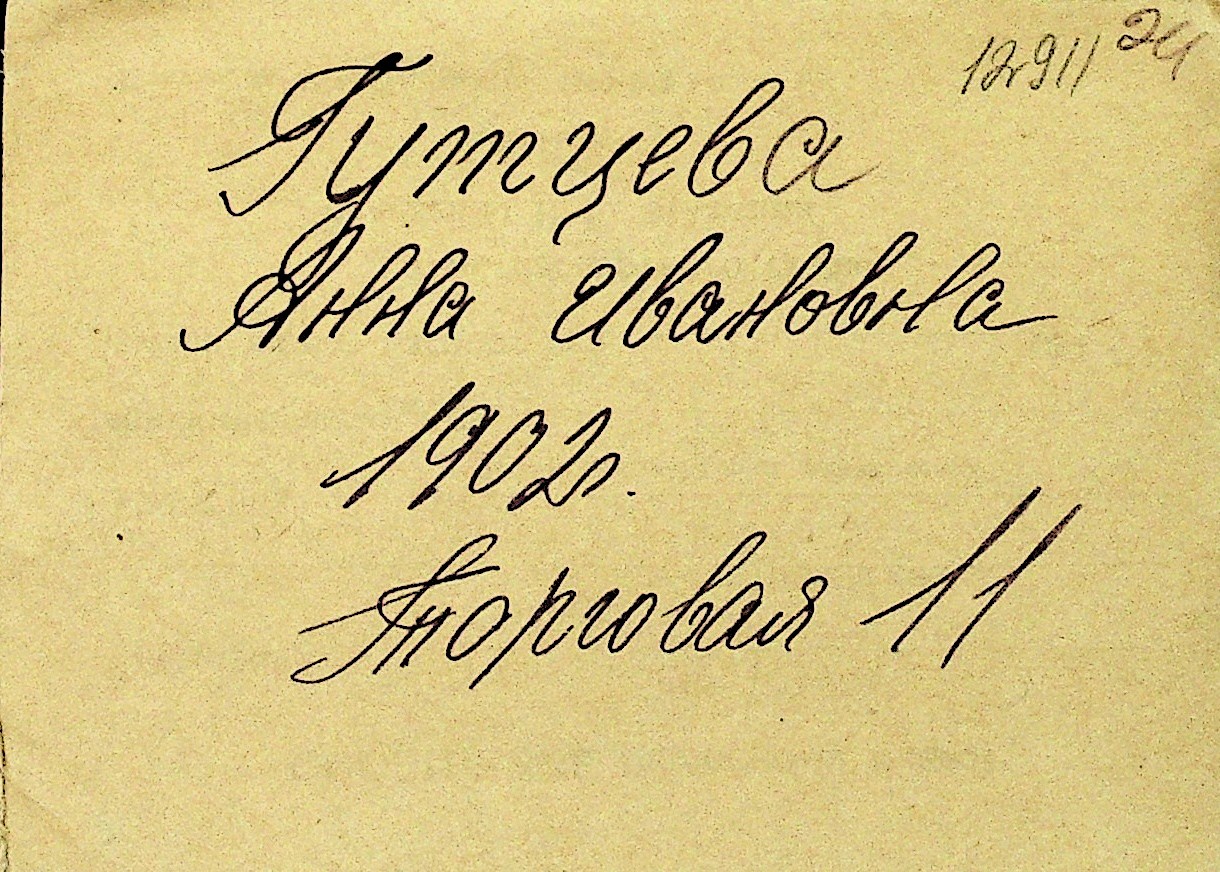 12911 24
Гутцева
Анна Ивановна
1902г.
Торговая 11